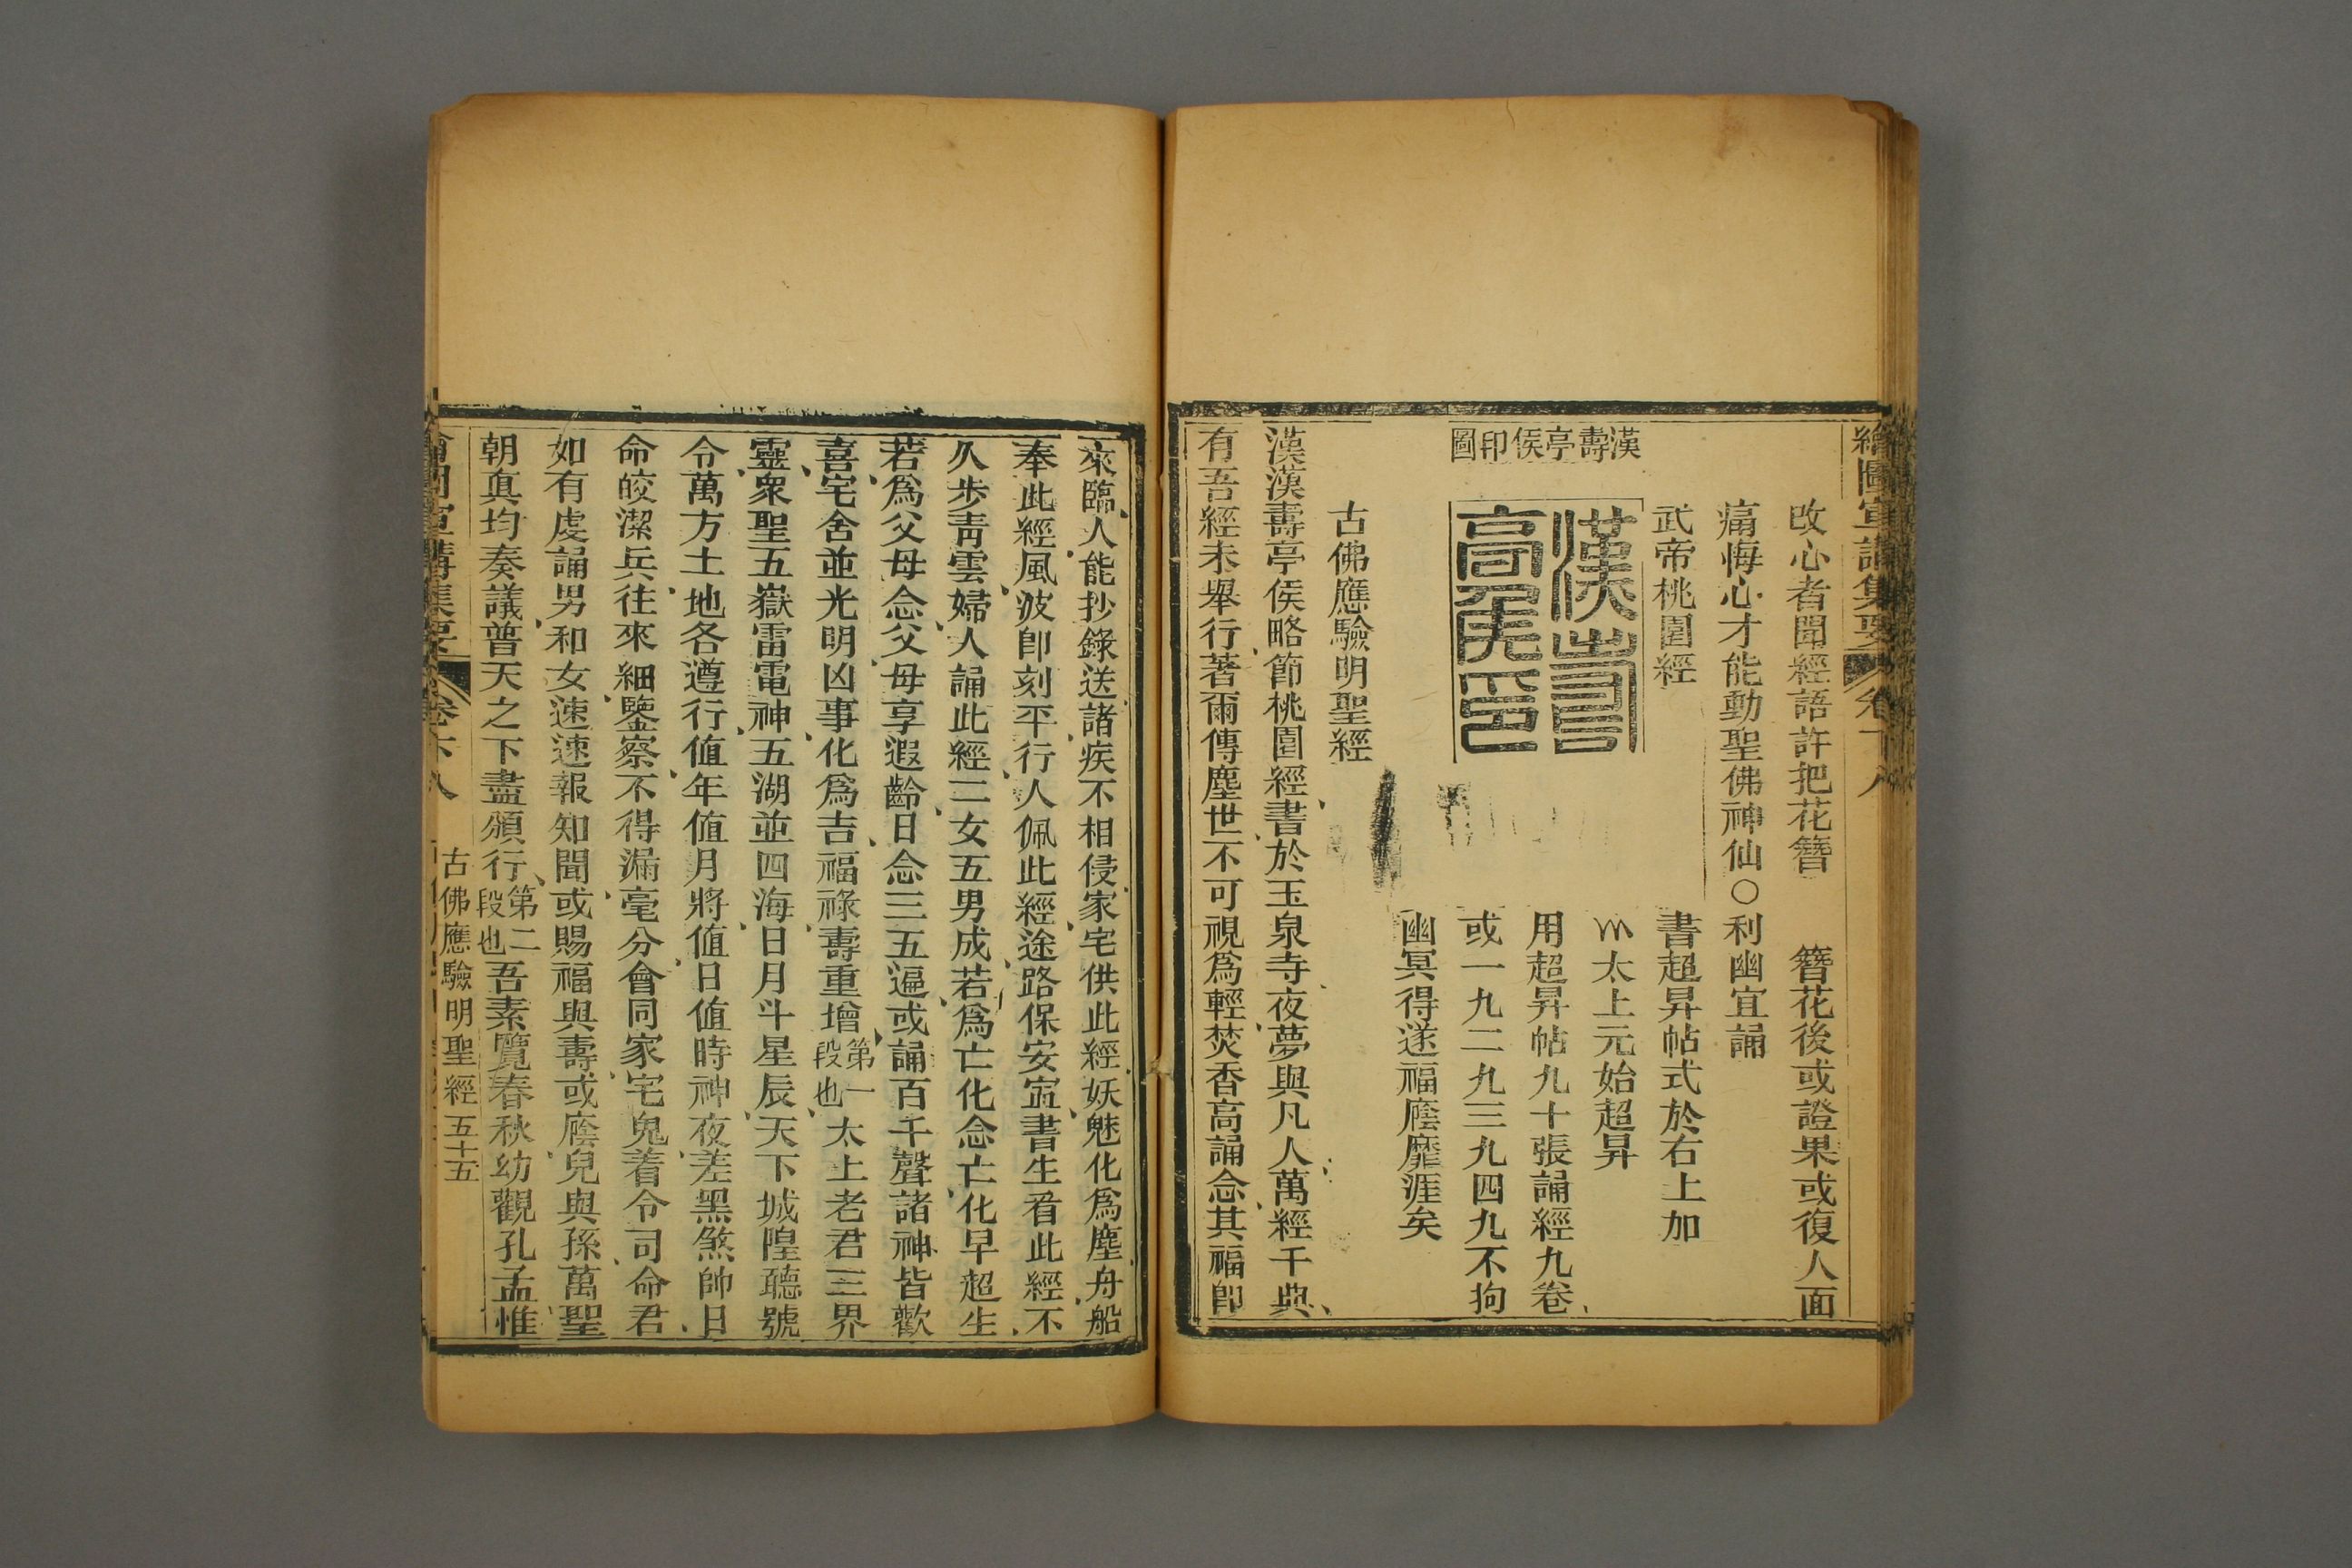 繪圖宣講集要 卷下八
改心者聞經語許把花簪 簪花後或證果或復人面
痛悔心才能動聖佛神仙○利幽宜誦
武帝桃園經
書超昇帖式於右上加
太上元始超昇
用超昇帖九十張誦經九卷
或一九二九三九四九不拘
幽冥得遂福廕靡涯矣
漢壽亭侯印圖
漢壽
亭侯印
古佛應驗明聖經
漢漢壽亭侯略節桃園經書於玉泉寺夜夢與凡人萬經千典
有吾經未舉行著爾傳塵世不可視爲輕焚香高誦念其福卽
來臨人能抄錄送諸疾不相侵家宅供此經妖魅化爲塵舟船
奉此經風波卽刻平行人佩此經途路保安寍書生看此經不
久步靑雲婦人誦此經二女五男成若爲亡化念亡化早超生
若爲父母念父母享遐齡日念三五遍或誦百千聲諸神皆歡
喜宅舍並光明凶事化爲吉福祿壽重增第一段也太上老君三界
靈衆聖五嶽雷電神五湖並四海日月斗星辰天下城隍聽號
令萬方土地各遵行値年値月將値日値時神夜差黑煞帥日
命皎潔兵往來細鑒察不得漏毫分會同家宅鬼着令司命君
如有虔誦男和女速速報知聞或賜福與壽或廕兒與孫萬聖
朝眞均奏議普天之下盡頒行第二段也吾素覽春秋幼觀孔孟惟
繪圖宣講集要 卷下八 古佛應驗明聖經 五十五